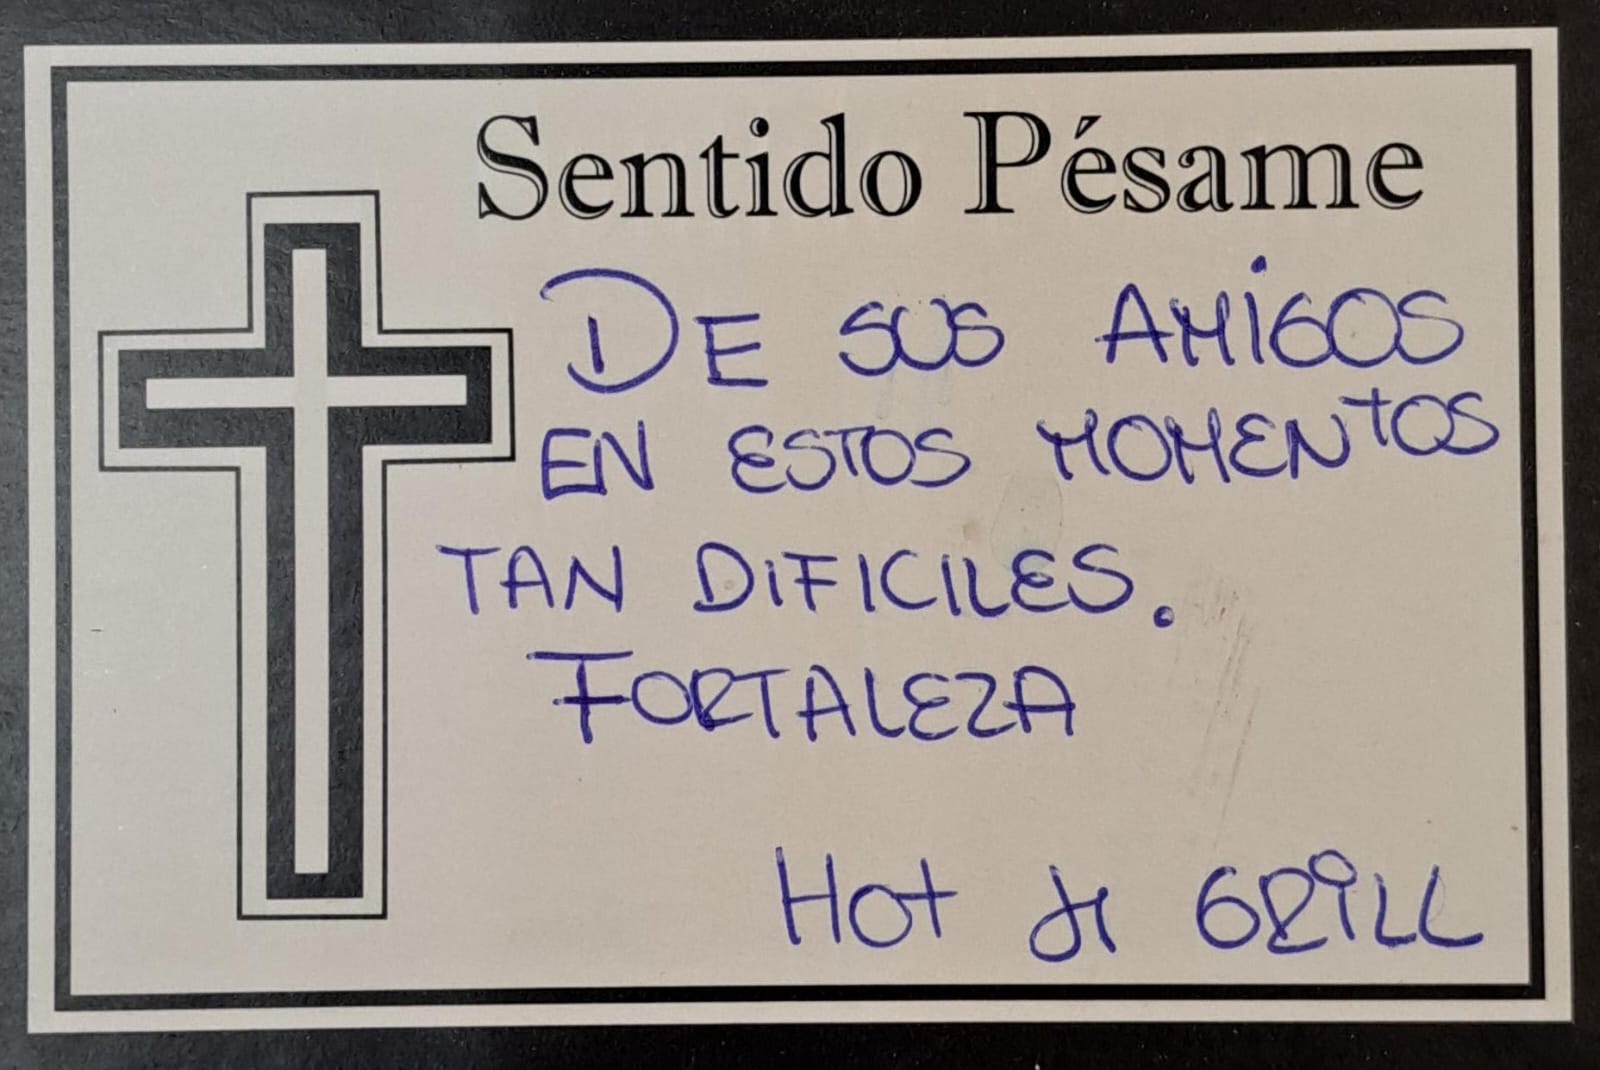 Sentido Pésame
DE SUS AMiGOS
EN ESTOS MOMENTOS
TAN DIFICILES.
FORTALEZA
Hot GRiLL